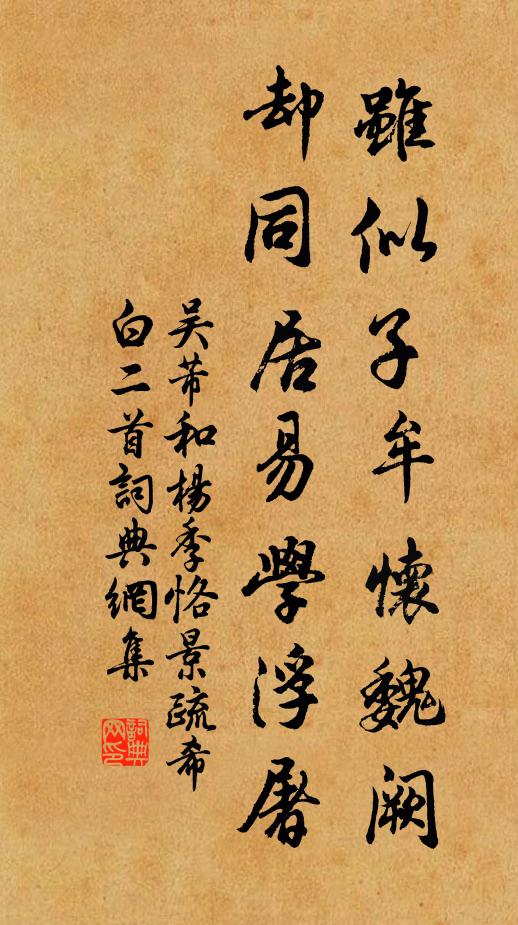 雖似子牟懷魏闕
却同居易學浮屠
吴芾和楊季恪景疏希
白二首詞典網集
詞典
网印